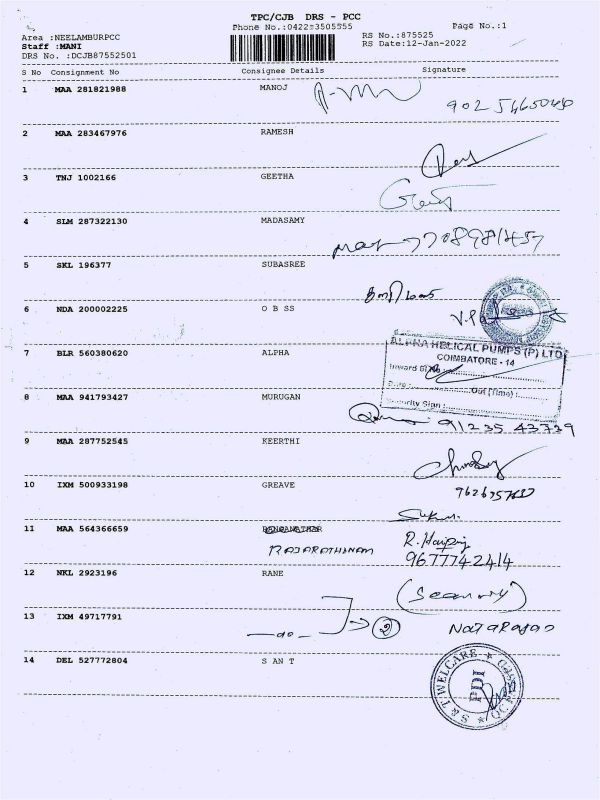 TPC/CJB DRS - PCC
Phone No.:0422-3505555 Page No.:1
Area :NEELAMBURPCC RS No.:875525
Staff :MANI RS Date:12-Jan-2022
DRS No. :DCJB87552501
S No Consignment No Consignee Details Signature
1 MAA 281821988 MANOJ
2 MAA 283467976 RAMESH
3 TNJ 1002166 GEETHA
4 SLM 287322130 MADASAMY
7708981457
5 SKL 196377 SUBASREE
6 NDA 200002225 O B SS
7 BLR 560380620 ALPHA
ALPHA HELICAL PUMPS (P) LTD
COIMBATORE - 14
Inward
Out (Time) :
Security Sign :
8 MAA 941793427 MURUGAN
91235 43739
9 MAA 287752545 KEERTHI
10 IXM 500933198 GREAVE
11 MAA 564366659
RAJARATHINAM
9677742414
12 NKL 2923196 RANE
13 IXM 49717791
-do- 2 Natarajan
14 DEL 527772804 S AN T
S & T WELCARE